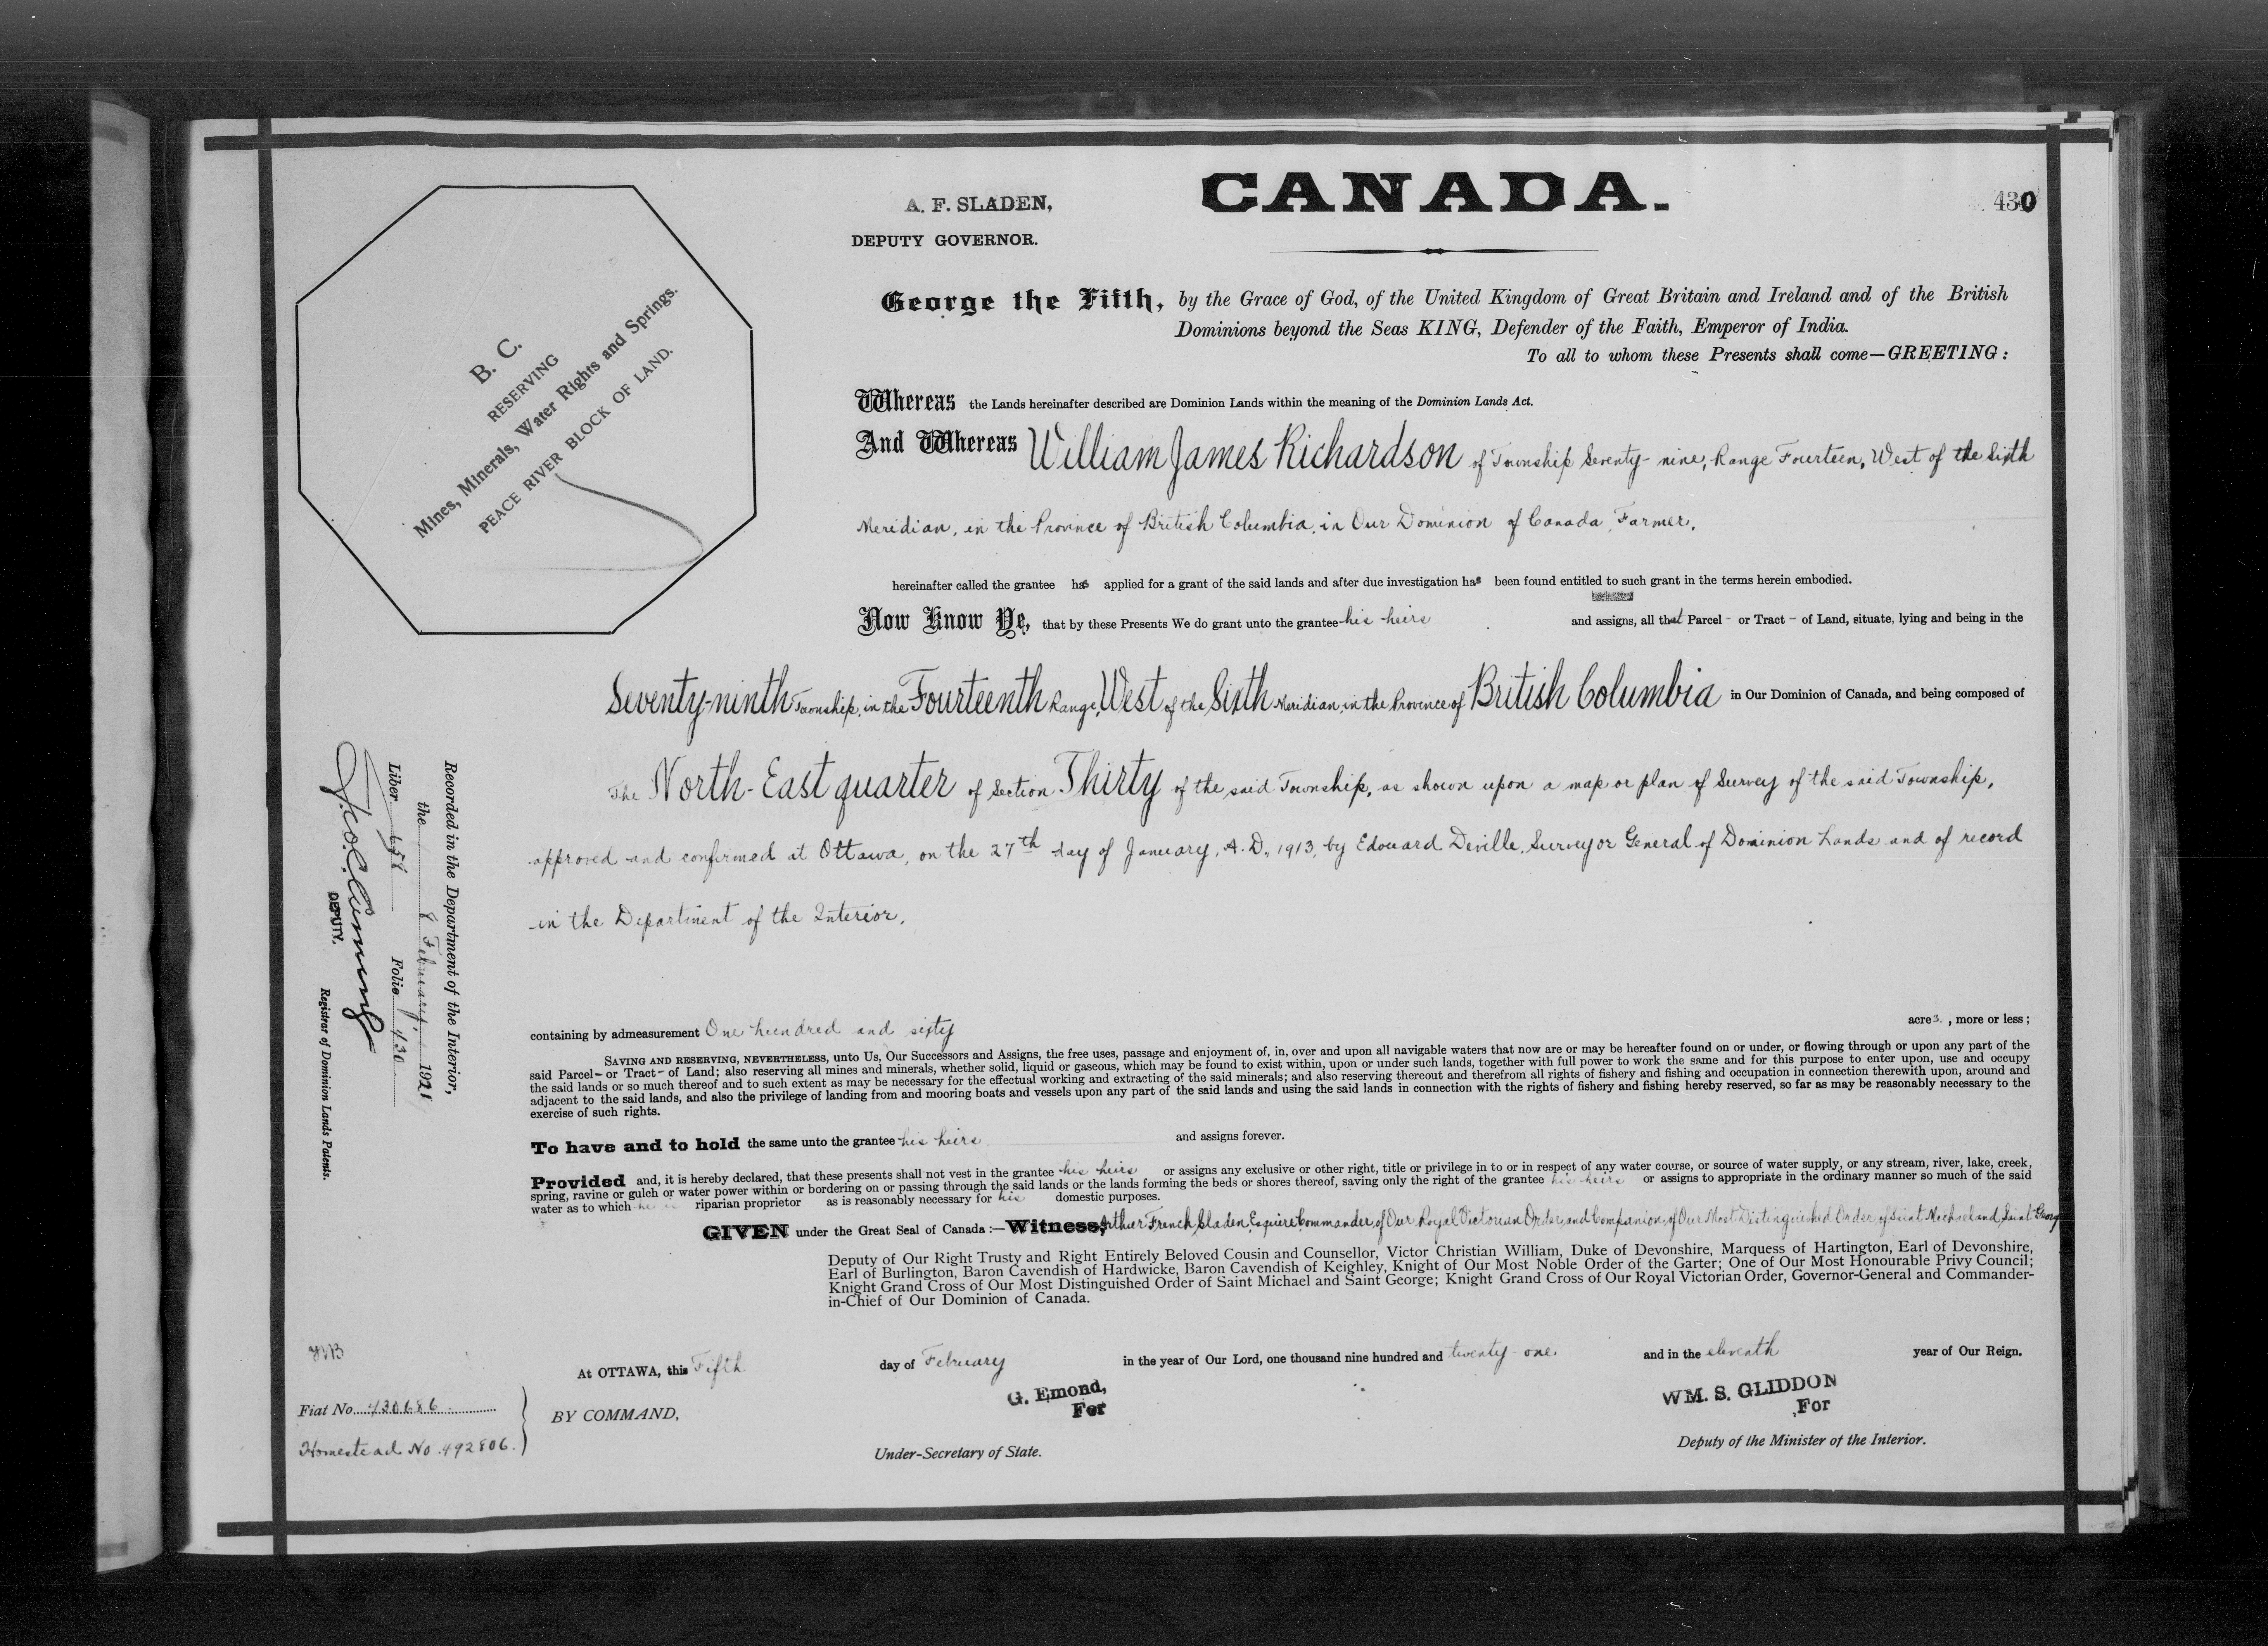 CANADA.
430
A. F. SLADEN,
DEPUTY GOVERNOR.
B. C.
RESERVING
Mines, Minerals, Water Rights and Springs.
PEACE RIVER BLOCK OF LAND.
George the Fifth, by the Grace of God, of the United Kingdom of Great Britain and Ireland and of the British
Dominions beyond the Seas KING, Defender of the Faith, Emperor of India.
To all to whom these Presents shall come—GREETING:
Whereas the Lands hereinafter described are Dominion Lands within the meaning of the Dominion Lands Act.
And Whereas William James Richardson of Township Seventy-nine, Range Fourteen, West of the Sixth
Meridian, in the Province of British Columbia, in Our Dominion of Canada, Farmer,
hereinafter called the grantee has applied for a grant of the said lands and after due investigation has been found entitled to such grant in the terms herein embodied.
Now Know Ye, that by these Presents We do grant unto the grantee his heirs and assigns, all that Parcel - or Tract - of Land, situate, lying and being in the
Seventy-ninth Township, in the Fourteenth Range, West of the Sixth Meridian, in the Province of British Columbia in Our Dominion of Canada, and being composed of
The North-East quarter of Section Thirty of the said Township, as shown upon a map or plan of Survey of the said Township,
approved and confirmed at Ottawa, on the 27th day of January, A.D., 1913, by Edouard Deville, Surveyor General of Dominion Lands and of record
in the Department of the Interior.
containing by admeasurement One hundred and sixty acres, more or less;
SAVING AND RESERVING, NEVERTHELESS, unto Us, Our Successors and Assigns, the free uses, passage and enjoyment of, in, over and upon all navigable waters that now are or may be hereafter found on or under, or flowing through or upon any part of the
said Parcel - or Tract - of Land; also reserving all mines and minerals, whether solid, liquid or gaseous, which may be found to exist within, upon or under such lands, together with full power to work the same and for this purpose to enter upon, use and occupy
the said lands or so much thereof and to such extent as may be necessary for the effectual working and extracting of the said minerals; and also reserving thereout and therefrom all rights of fishery and fishing and occupation in connection therewith upon, around and
adjacent to the said lands, and also the privilege of landing from and mooring boats and vessels upon any part of the said lands and using the said lands in connection with the rights of fishery and fishing hereby reserved, so far as may be reasonably necessary to the
exercise of such rights.
To have and to hold the same unto the grantee his heirs and assigns forever.
Provided and, it is hereby declared, that these presents shall not vest in the grantee his heirs or assigns any exclusive or other right, title or privilege in to or in respect of any water course, or source of water supply, or any stream, river, lake, creek,
spring, ravine or gulch or water power within or bordering on or passing through the said lands or the lands forming the beds or shores thereof, saving only the right of the grantee his heirs or assigns to appropriate in the ordinary manner so much of the said
water as to which he is riparian proprietor as is reasonably necessary for his domestic purposes.
GIVEN under the Great Seal of Canada:—Witness, Arthur French Sladen, Esquire, Commander of Our Royal Victorian Order, and Companion of Our Most Distinguished Order of Saint Michael and Saint George
Deputy of Our Right Trusty and Right Entirely Beloved Cousin and Counsellor, Victor Christian William, Duke of Devonshire, Marquess of Hartington, Earl of Devonshire,
Earl of Burlington, Baron Cavendish of Hardwicke, Baron Cavendish of Keighley, Knight of Our Most Noble Order of the Garter; One of Our Most Honourable Privy Council;
Knight Grand Cross of Our Most Distinguished Order of Saint Michael and Saint George; Knight Grand Cross of Our Royal Victorian Order, Governor-General and Commander-
in-Chief of Our Dominion of Canada.
At OTTAWA, this Fifth day of February in the year of Our Lord, one thousand nine hundred and twenty-one. and in the eleventh year of Our Reign.
BY COMMAND,
G. Emond,
For
Under-Secretary of State.
WM. S. GLIDDON
For
Deputy of the Minister of the Interior.
Fiat No. 430686
Homestead No. 492806.
Recorded in the Department of the Interior,
the 8 February, 1921
Liber 658 Folio 430
DEPUTY.
Registrar of Dominion Lands Patents.